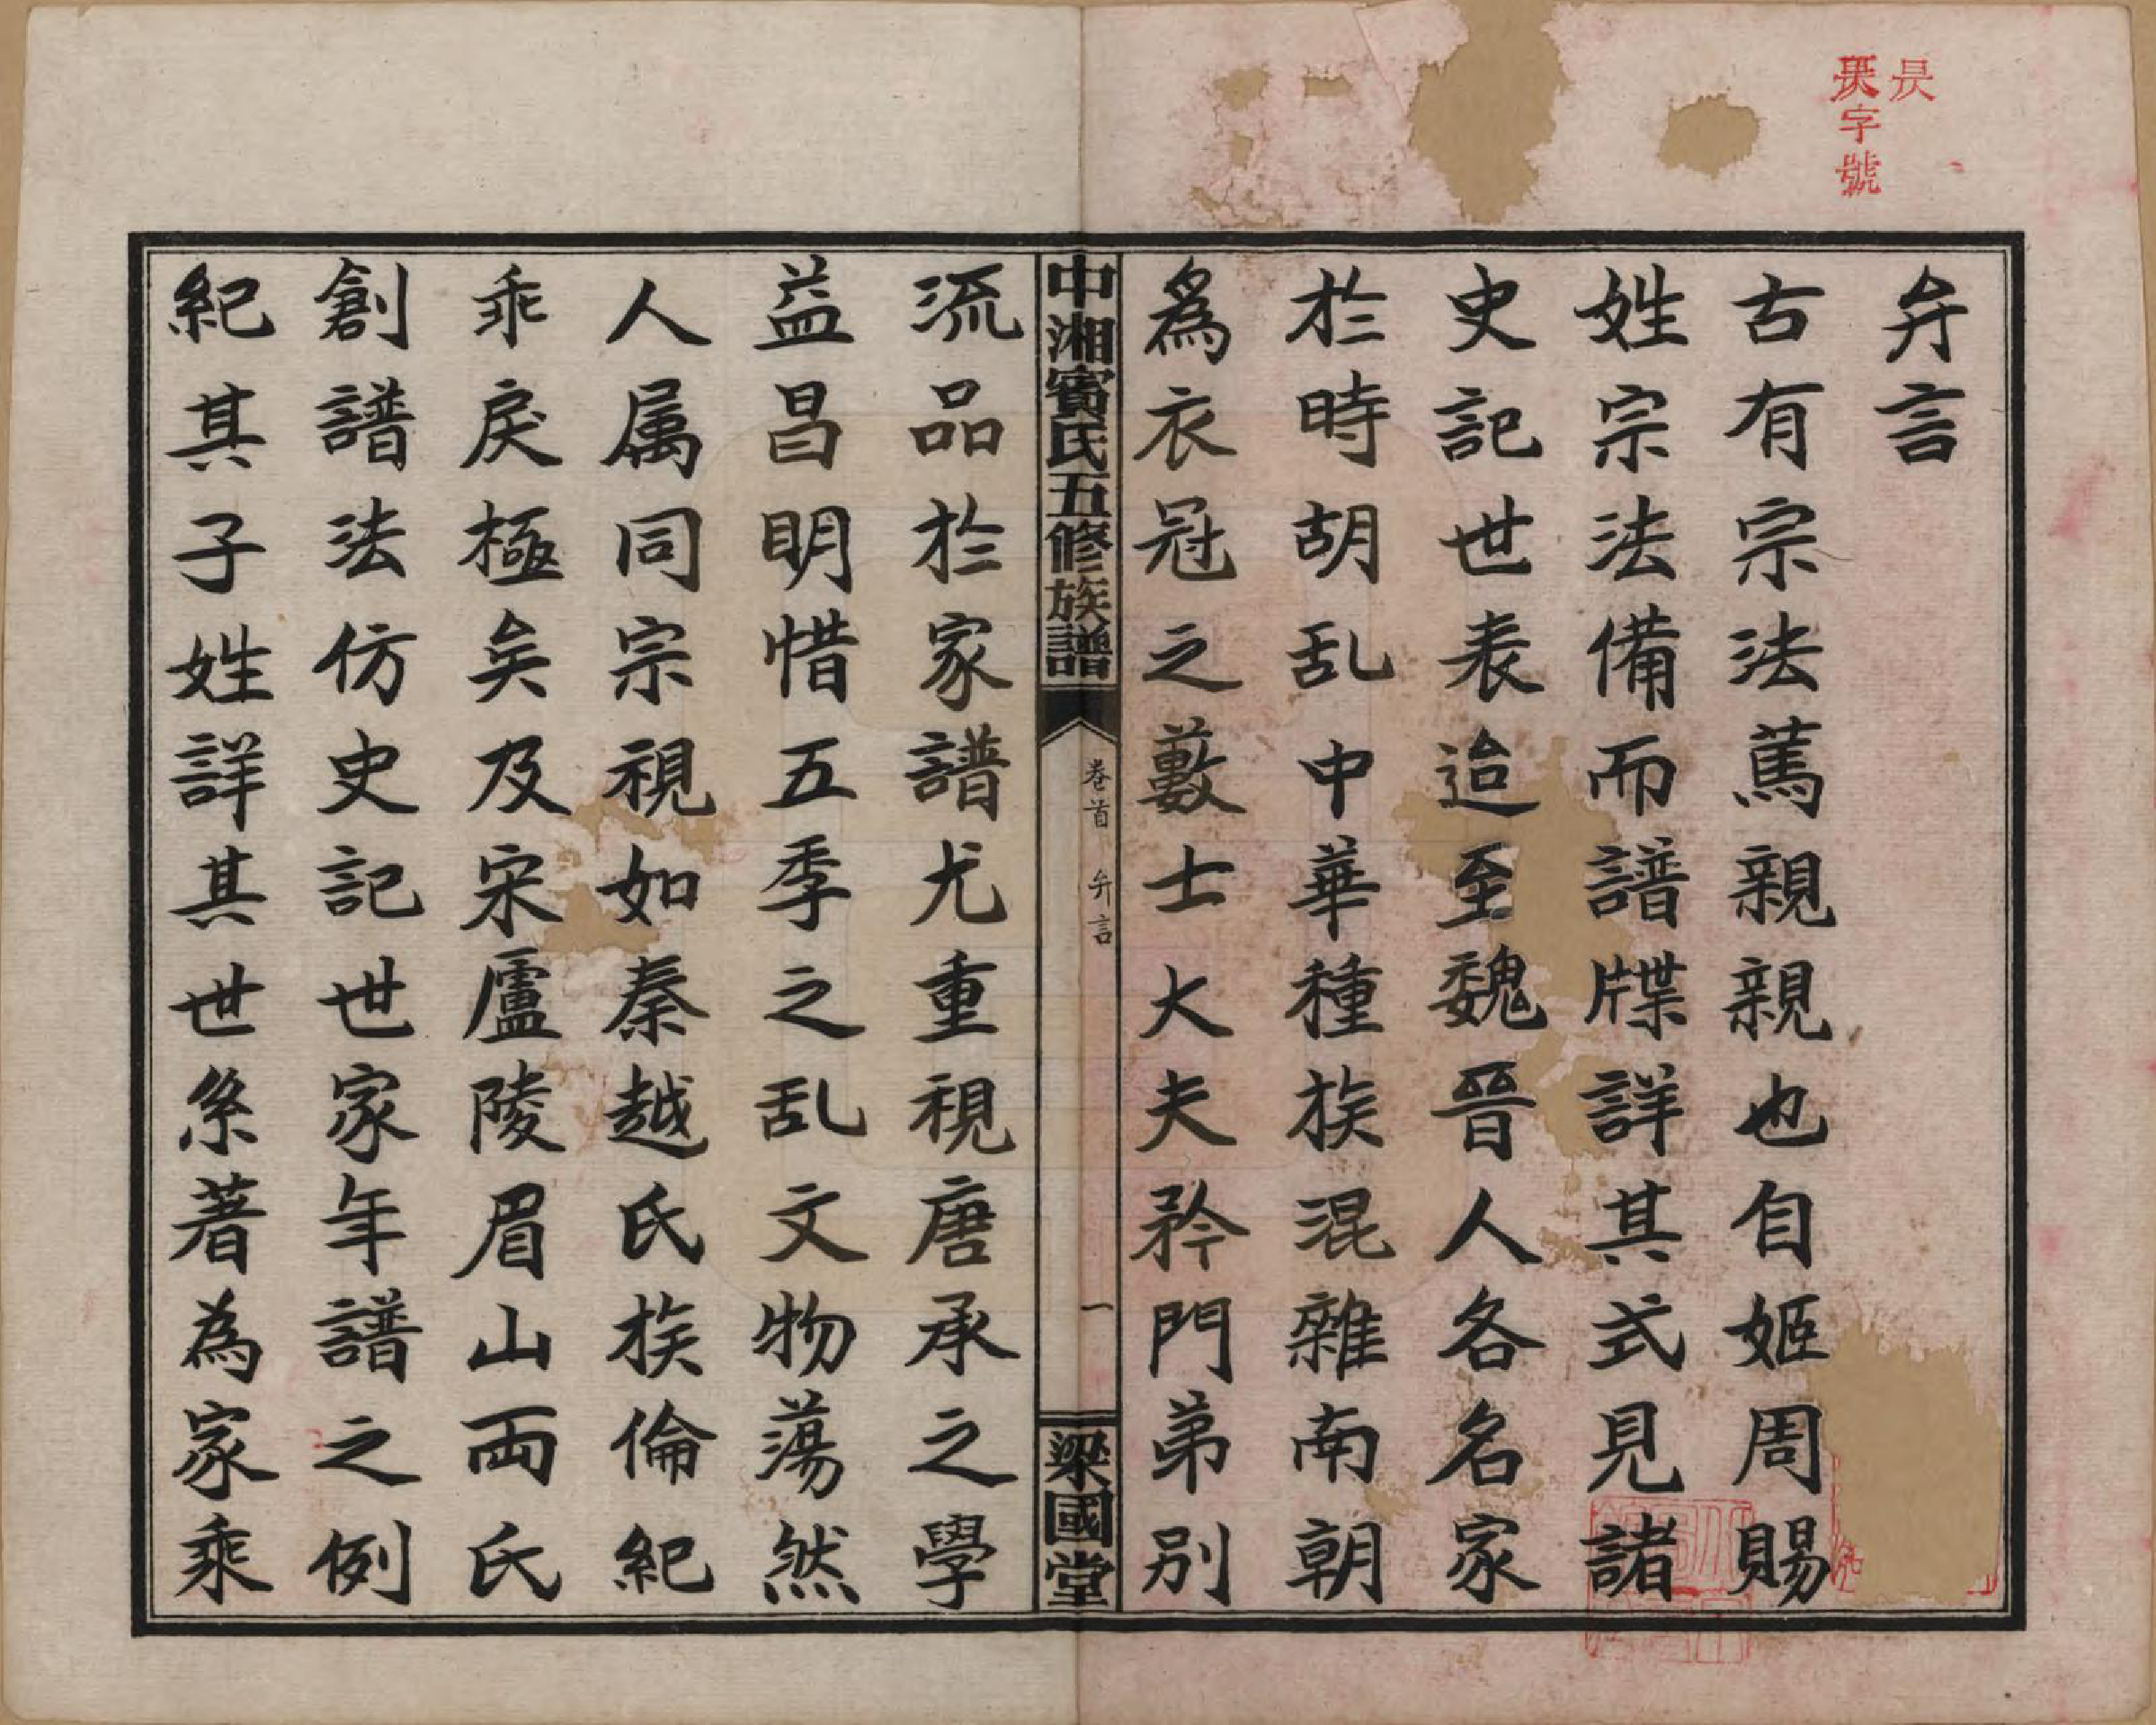 昃
昃字號
弁言
古有宗法萬親親也自姬周賜
姓宗法備而譜牒詳其式見諸
史記世表迨至魏晉人各名家
於時胡乱中華種族混雜南朝
爲衣冠之藪士大夫矜門弟別
中湘賓氏五修族譜
卷首 弁言
一
梁國堂
流品於家譜尤重視唐承之學
益昌明惜五季之乱文物蕩然
人属同宗視如秦越氏族倫紀
乖戾極矣及宋廬陵眉山両氏
創譜法仿史記世家年譜之例
紀其子姓詳其世系著為家乘